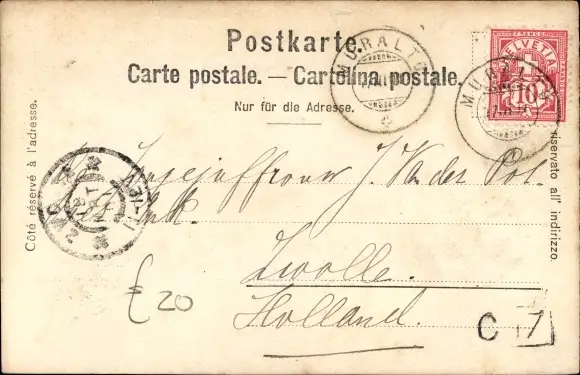 Postkarte.
Carte postale. — Cartolina postale.
Nur für die Adresse.
Côté réservé à l'adresse.
riservato all' indirizzo.
FRANCO
HELVETIA
10
MURALTO
MURALTO
J. Van der Pol.
Zwolle.
Holland.
£ 20
C 17